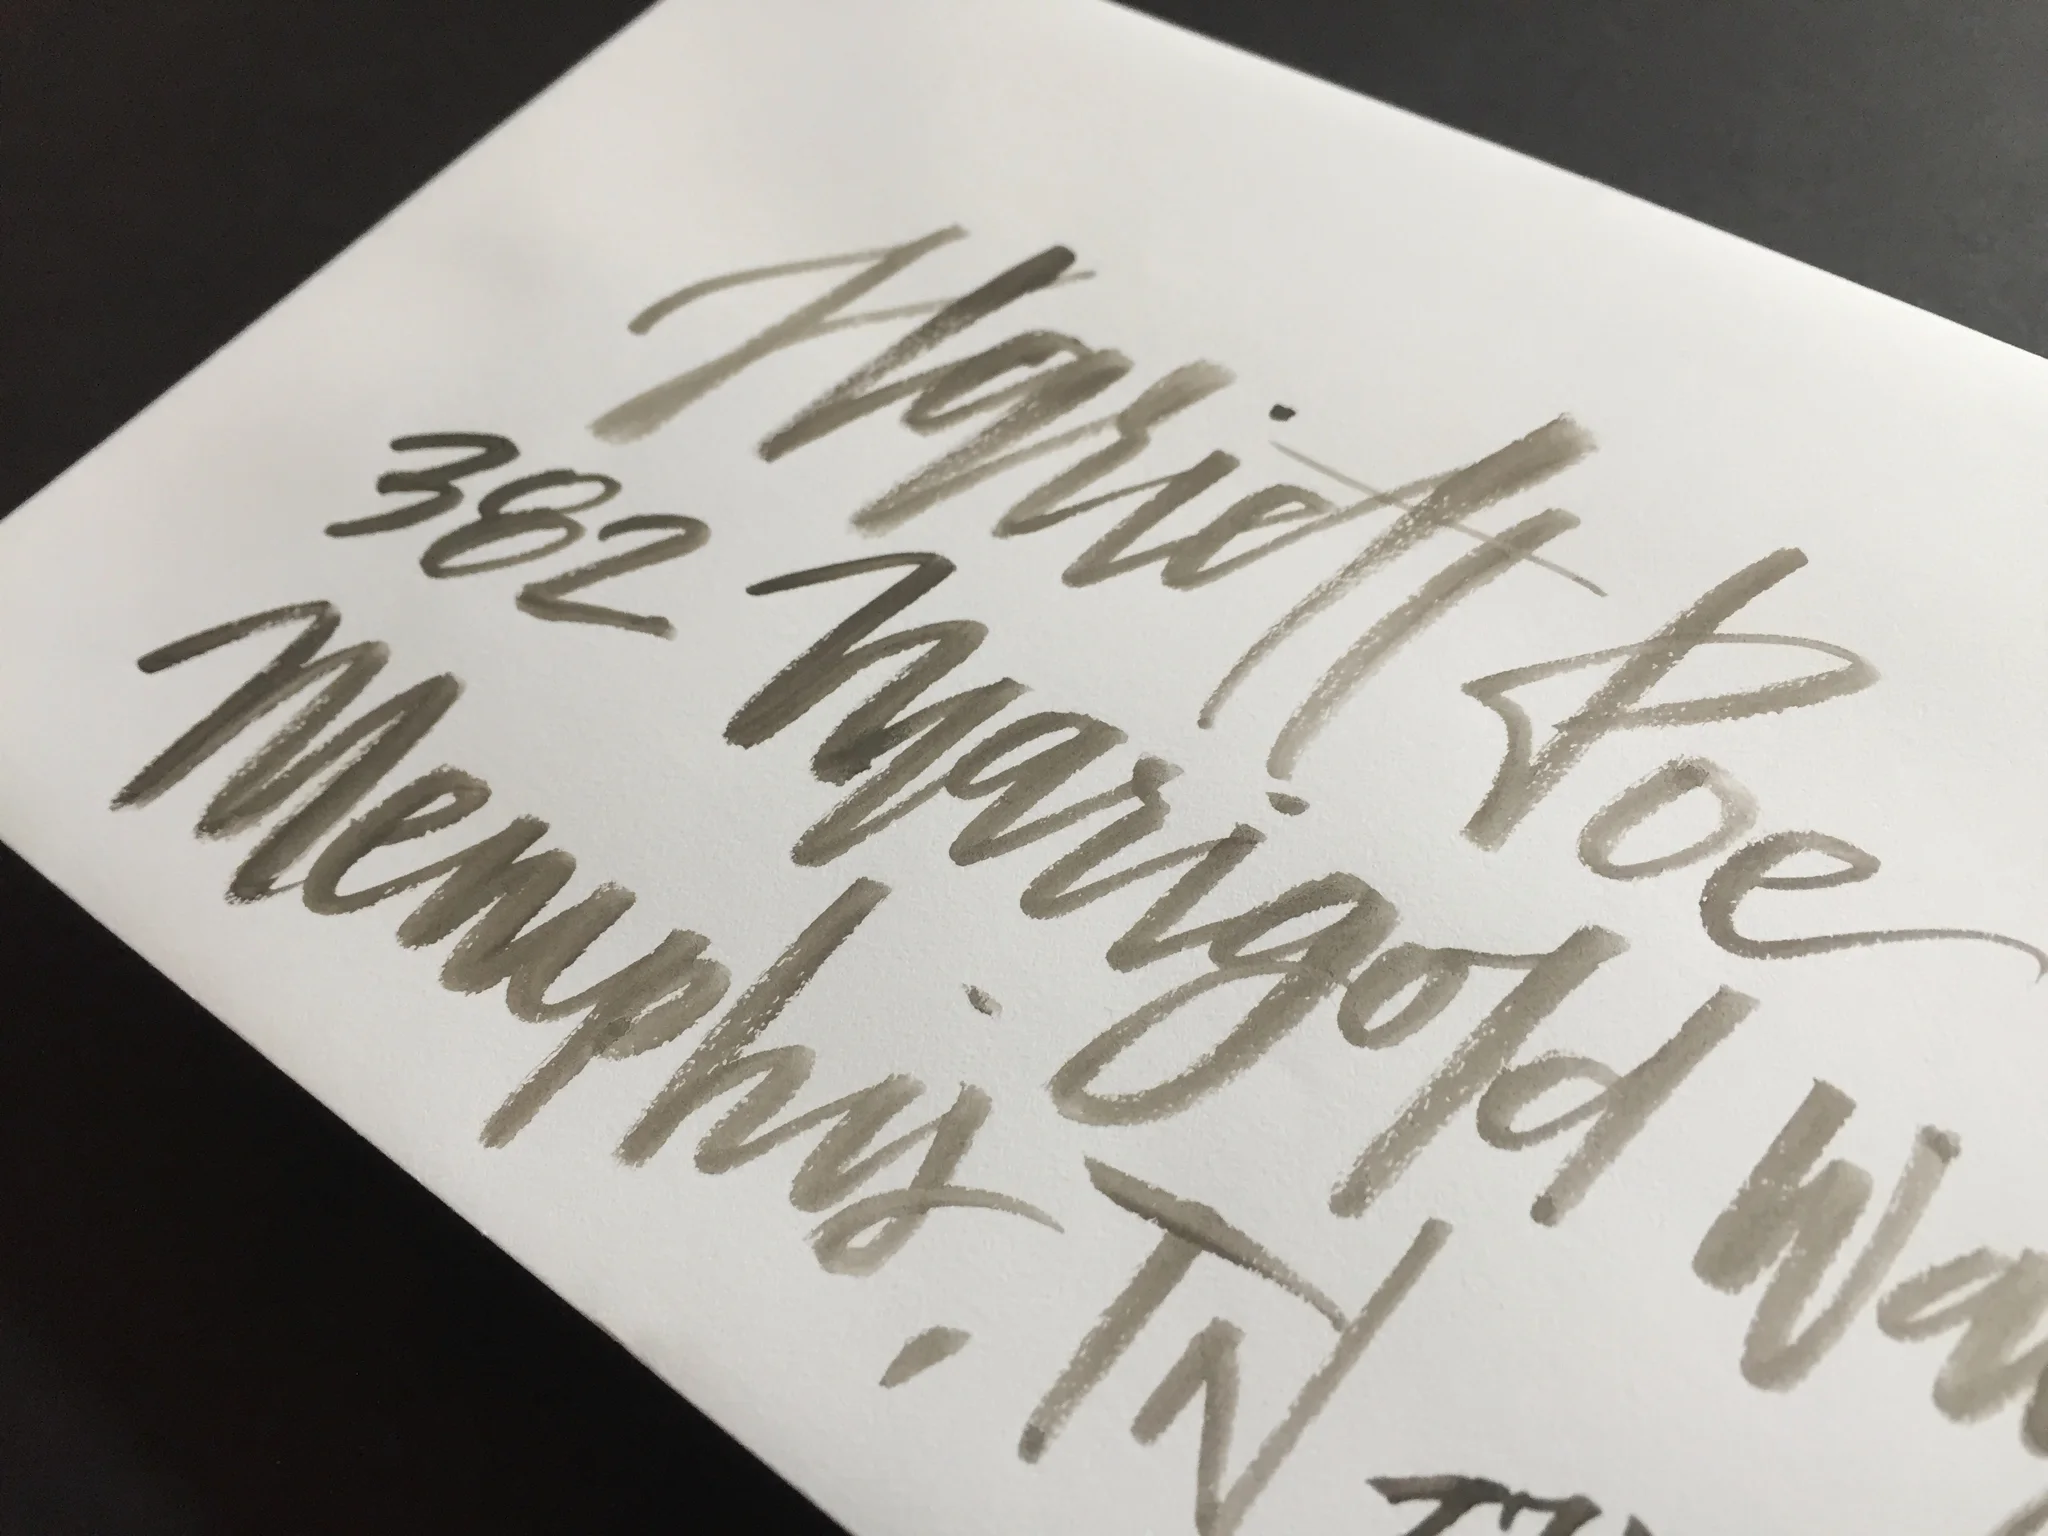 Hariett Poe
382 Marigold Way
Memphis, TN